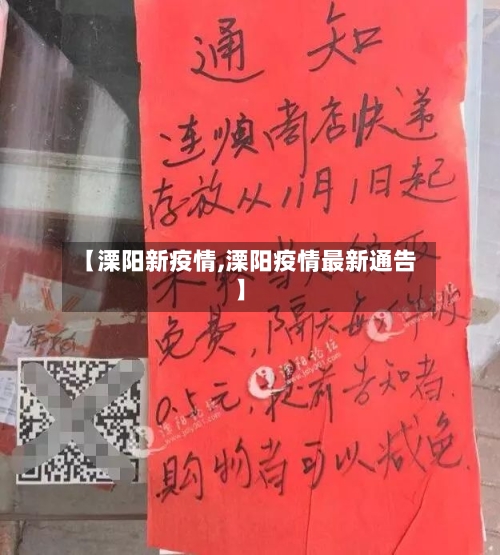 通知
连顺商店快递
存放从11月1日起
【溧阳新疫情,溧阳疫情最新通告
】
免费,隔天每
溧阳论坛
0.5元,提前告知者.
溧阳论坛
购物者可以减免.